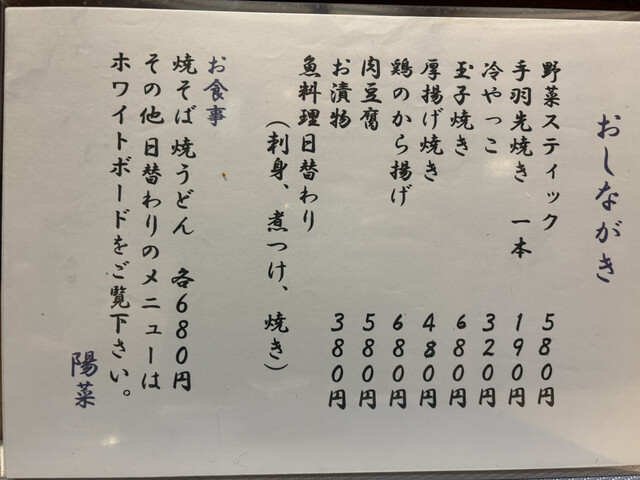 おしながき
野菜スティック 580円
手羽先焼き 一本 190円
冷やっこ 320円
玉子焼き 680円
厚揚げ焼き 480円
鶏のから揚げ 680円
肉豆腐 580円
お漬物 380円
魚料理日替わり
(刺身、煮つけ、焼き)
お食事
焼そば 焼うどん 各680円
その他 日替わりのメニューは
ホワイトボードをご覧下さい。
陽菜